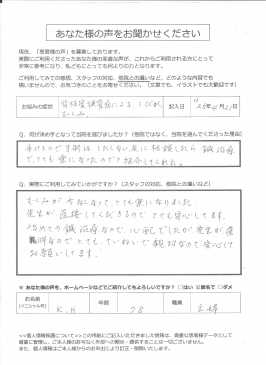 あなた様の声をお聞かせください
現在、「患者様の声」を募集しております。
実際にご利用くださったあなた様の率直な声が、これからご利用される方にとって
非常に参考になり、私どもにとっても何よりの力となります。
ご利用してみての感想、スタッフの対応、他院との違いなど、どのような内容でも
構いませんので、お気づきのことをお寄せください。(文章でも、イラストでも大歓迎です)
お悩みの症状 脊柱管狭窄症による、しびれ、
むくみ 記入日
Q. 何が決め手となって当院を選びましたか?(他院ではなく、当院を選んでくださった理由)
手術はしたくない。友に相談したら鍼治療
でとても楽になったのでと紹介してくれた。
Q. 実際にご利用してみていかがですか?(スタッフの対応、他院との違いなど)
むくみが少なくなってとても楽になりました
先生が直接してくださるのでとても安心してます。
始めての鍼治療なので心配でしたが先生が優
でとてもていねいで親切なので安心して
お願いしてます。
※ あなた様の声を、ホームページなどでご紹介してもよろしいですか? □はい □匿名で □ダメ
お名前
(イニシャル可) K.H 年齢 78 職業 主婦
<<個人情報保護について>>この用紙にご記入いただきました情報は、貴重な患者様データとして
厳重に管理し、ご本人様の許可なく外部への開示・提供することは一切ございません。
また、個人情報はご本人様からのお申出により訂正・削除いたします。